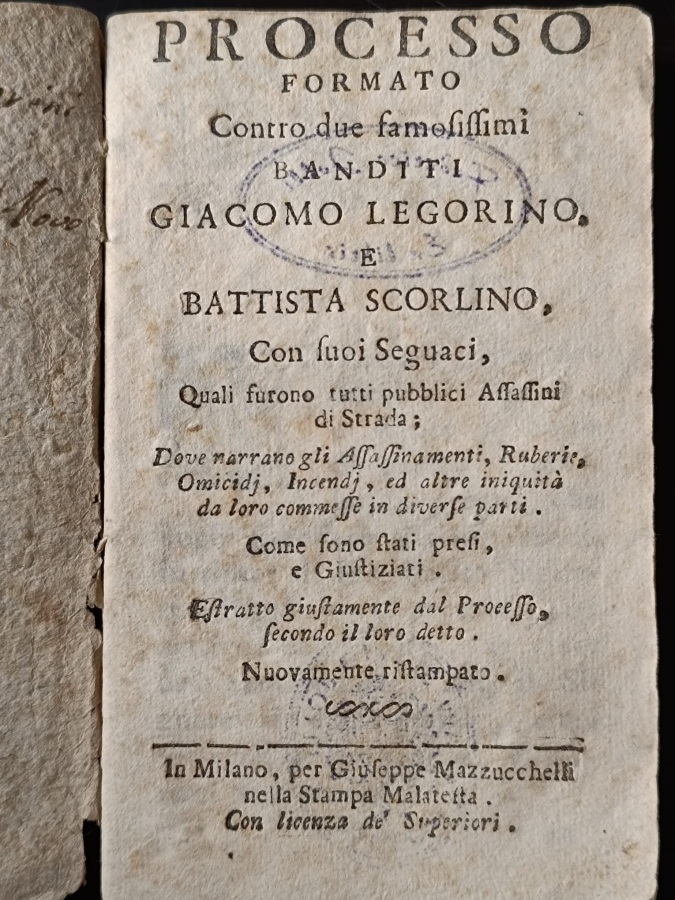 PROCESSO
FORMATO
Contro due famoſiſſimi
BANDITI
GIACOMO LEGORINO,
E
BATTISTA SCORLINO,
Con ſuoi Seguaci,
Quali furono tutti pubblici Aſſaſſini
di Strada;
Dove narrano gli Aſſaſſinamenti, Ruberie,
Omicidj, Incendj, ed altre iniquità
da loro commeſſe in diverſe parti.
Come ſono ſtati preſi,
e Giuſtiziati.
Eſtratto giuſtamente dal Proceſſo,
ſecondo il loro detto.
Nuovamente riſtampato.
In Milano, per Giuſeppe Mazzucchelli
nella Stampa Malateſta.
Con licenza de' Superiori.